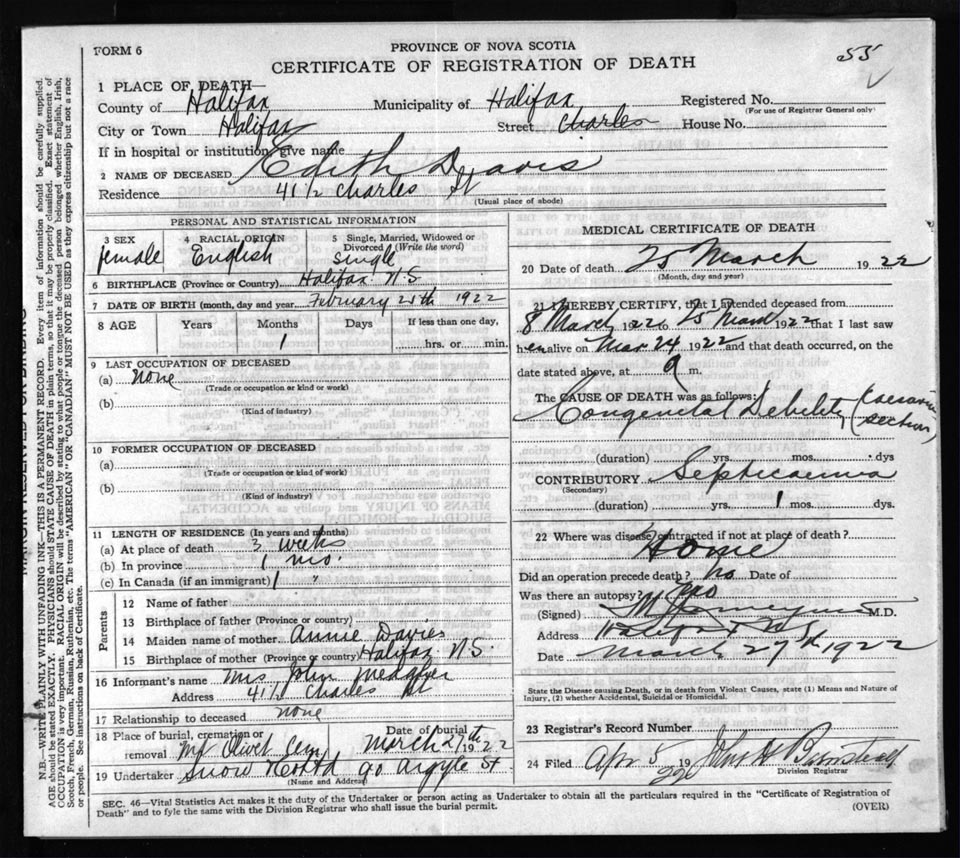 FORM 6
PROVINCE OF NOVA SCOTIA
55
CERTIFICATE OF REGISTRATION OF DEATH
1 PLACE OF DEATH—
County of Halifax Municipality of Halifax Registered No.
(For use of Registrar General only)
City or Town Halifax Street Charles House No.
If in hospital or institution, give name
2 NAME OF DECEASED Edith Davis
Residence 41 1/2 Charles St
(Usual place of abode)
PERSONAL AND STATISTICAL INFORMATION
3 SEX 4 RACIAL ORIGIN 5 Single, Married, Widowed or Divorced (Write the word)
female English single
6 BIRTHPLACE (Province or Country) Halifax N.S
7 DATE OF BIRTH (month, day and year) February 25th 1922
8 AGE Years Months Days If less than one day,
1 hrs. or min.
9 LAST OCCUPATION OF DECEASED
(a) None
(Trade or occupation or kind or work)
(b)
(Kind of industry)
10 FORMER OCCUPATION OF DECEASED
(a)
(Trade or occupation or kind of work)
(b)
(Kind of industry)
11 LENGTH OF RESIDENCE (In years and months)
(a) At place of death 3 weeks
(b) In province 1 mo.
(c) In Canada (if an immigrant) 1 "
Parents
12 Name of father
13 Birthplace of father (Province or country)
14 Maiden name of mother Annie Davies
15 Birthplace of mother (Province or country) Halifax N.S.
16 Informant's name Mrs John
Address 41 1/2 Charles St
17 Relationship to deceased none
18 Place of burial, cremation or removal Mt Olivet Cem Date of burial March 27th 1922
19 Undertaker Snow & Co Ltd 90 Argyle St
(Name and Address)
MEDICAL CERTIFICATE OF DEATH
20 Date of death 25 March 1922
(Month, day and year)
21 I HEREBY CERTIFY, that I attended deceased from
8 March 1922 to 25 March 1922 that I last saw
her alive on Mar 24 1922 and that death occurred, on the
date stated above, at 9 m.
The CAUSE OF DEATH was as follows:
Congenital Debility (Caesarian section)
(duration) yrs. mos. dys
CONTRIBUTORY Septicaemia
(Secondary)
(duration) yrs. 1 mos. dys.
22 Where was disease contracted if not at place of death?
Home
Did an operation precede death? no Date of
Was there an autopsy?
(Signed) M.D.
Address Halifax N.S.
Date March 27th 1922
State the Disease causing Death, or in death from Violent Causes, state (1) Means and Nature of
Injury, (2) whether Accidental, Suicidal or Homicidal.
23 Registrar's Record Number
24 Filed Apr 5 1922
Division Registrar
SEC. 46—Vital Statistics Act makes it the duty of the Undertaker or person acting as Undertaker to obtain all the particulars required in the "Certificate of Registration of
Death" and to fyle the same with the Division Registrar who shall issue the burial permit. (OVER)
MARGIN RESERVED FOR BINDING
N.B.—WRITE PLAINLY WITH UNFADING INK—THIS IS A PERMANENT RECORD. Every item of information should be carefully supplied.
AGE should be stated EXACTLY. PHYSICIANS should STATE CAUSE OF DEATH in plain terms, so that it may be properly classified. Exact statement of
OCCUPATION is very important. RACIAL ORIGIN will be described by stating to what people or tongue the deceased person belonged whether English, Irish,
Scotch, French, German, Russian, Ruthenian, etc. The terms "AMERICAN" or "CANADIAN" MUST NOT BE USED as they express citizenship but not a race
or people. See instructions on back of Certificate.